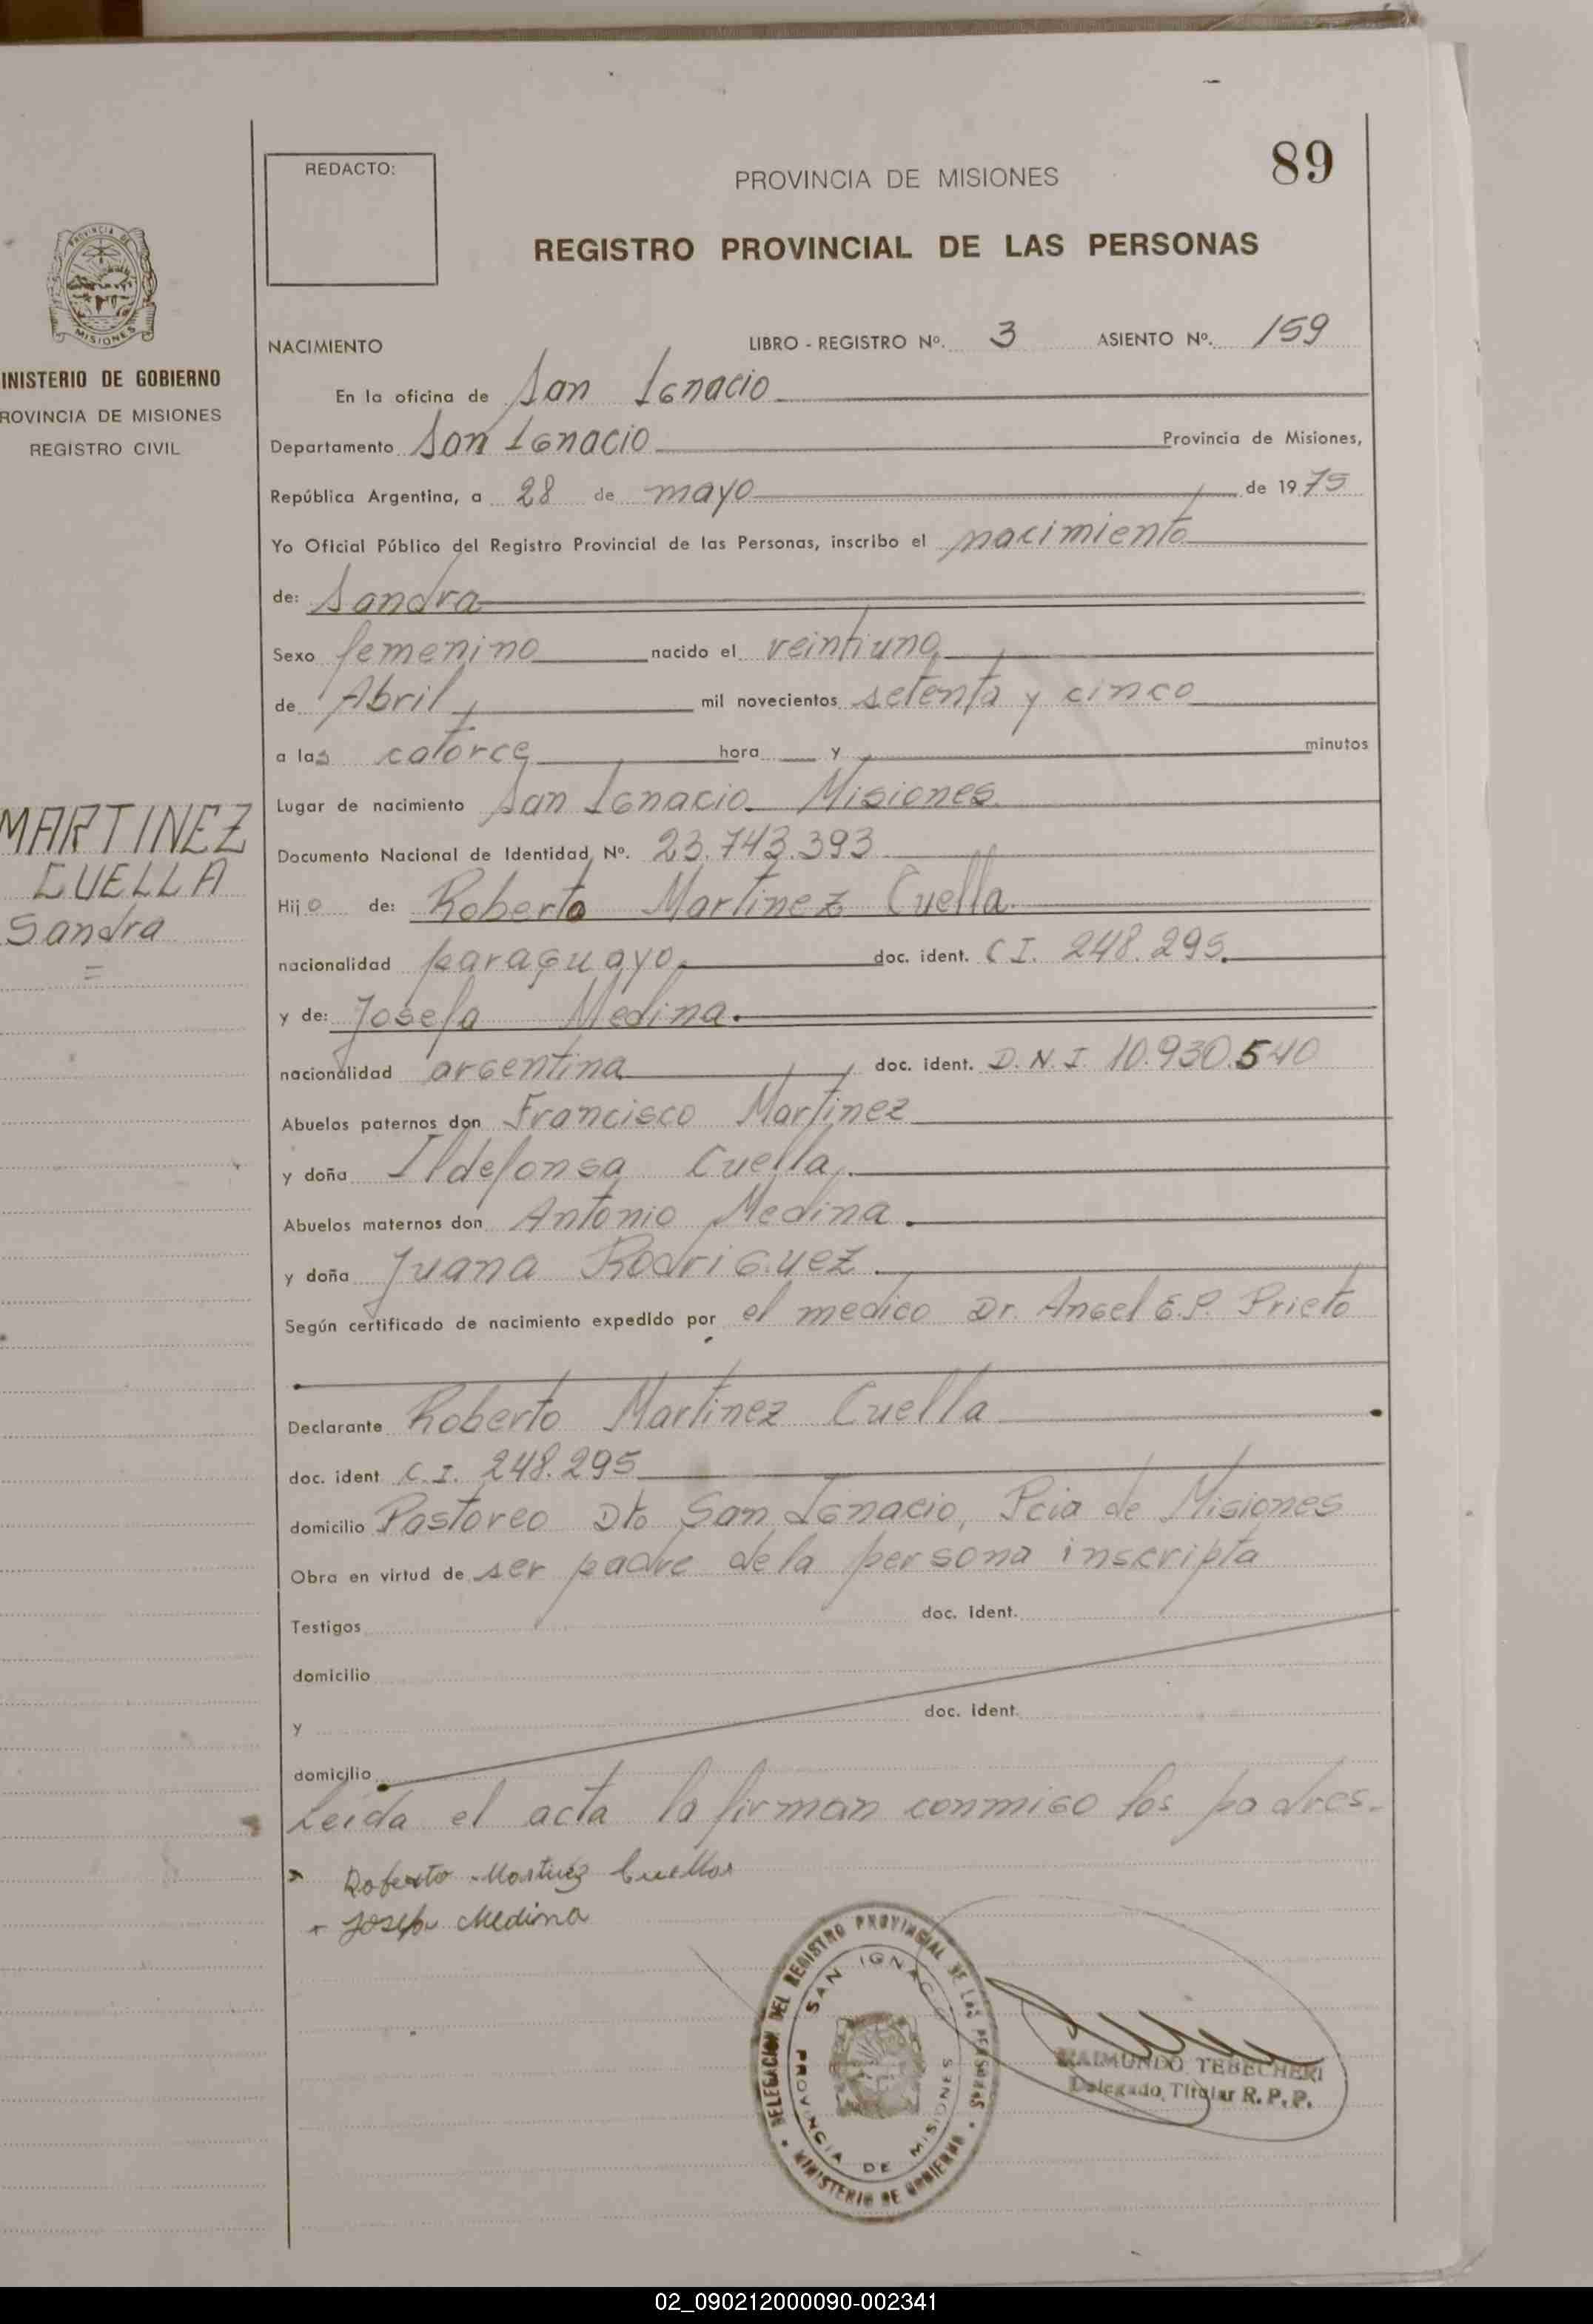 89
REDACTO:
PROVINCIA DE MISIONES
REGISTRO PROVINCIAL DE LAS PERSONAS
PROVINCIA DE
MISIONES
INISTERIO DE GOBIERNO
ROVINCIA DE MISIONES
REGISTRO CIVIL
NACIMIENTO LIBRO - REGISTRO Nº. 3 ASIENTO Nº. 159
En la oficina de San Ignacio
Departamento San Ignacio Provincia de Misiones,
República Argentina, a 28 de mayo de 1975
Yo Oficial Público del Registro Provincial de las Personas, inscribo el nacimiento
de: Sandra
Sexo femenino nacido el veintiuno
de Abril mil novecientos setenta y cinco
a las catorce hora y minutos
Lugar de nacimiento San Ignacio Misiones
Documento Nacional de Identidad, Nº. 23.743.393
MARTINEZ
CUELLA
Sandra
=
Hijo de: Roberto Martinez Cuella
nacionalidad paraguayo doc. ident. C I. 248.295.
y de: Josefa Medina.
nacionalidad argentina doc. ident. D.N.I. 10.930.540
Abuelos paternos don Francisco Martinez
y doña Ildefonsa Cuella.
Abuelos maternos don Antonio Medina.
y doña Juana Rodriguez.
Según certificado de nacimiento expedido por el medico Dr. Angel E.P. Prieto
Declarante Roberto Martinez Cuella
doc. ident C.I. 248.295
domicilio Pastoreo Dto San Ignacio, Pcia de Misiones
Obra en virtud de ser padre de la persona inscripta
Testigos doc. ident.
domicilio
y doc. ident.
domicilio
Leida el acta la firman conmigo los padres.
Roberto Martinez Cuellar
Josefa Medina
DELEGACION DEL REGISTRO PROVINCIAL DE LAS PERSONAS
SAN IGNACIO
PROVINCIA DE MISIONES
MINISTERIO DE GOBIERNO
RAIMUNDO TEBECHERI
Delegado Titular R. P. P.
02_090212000090-002341